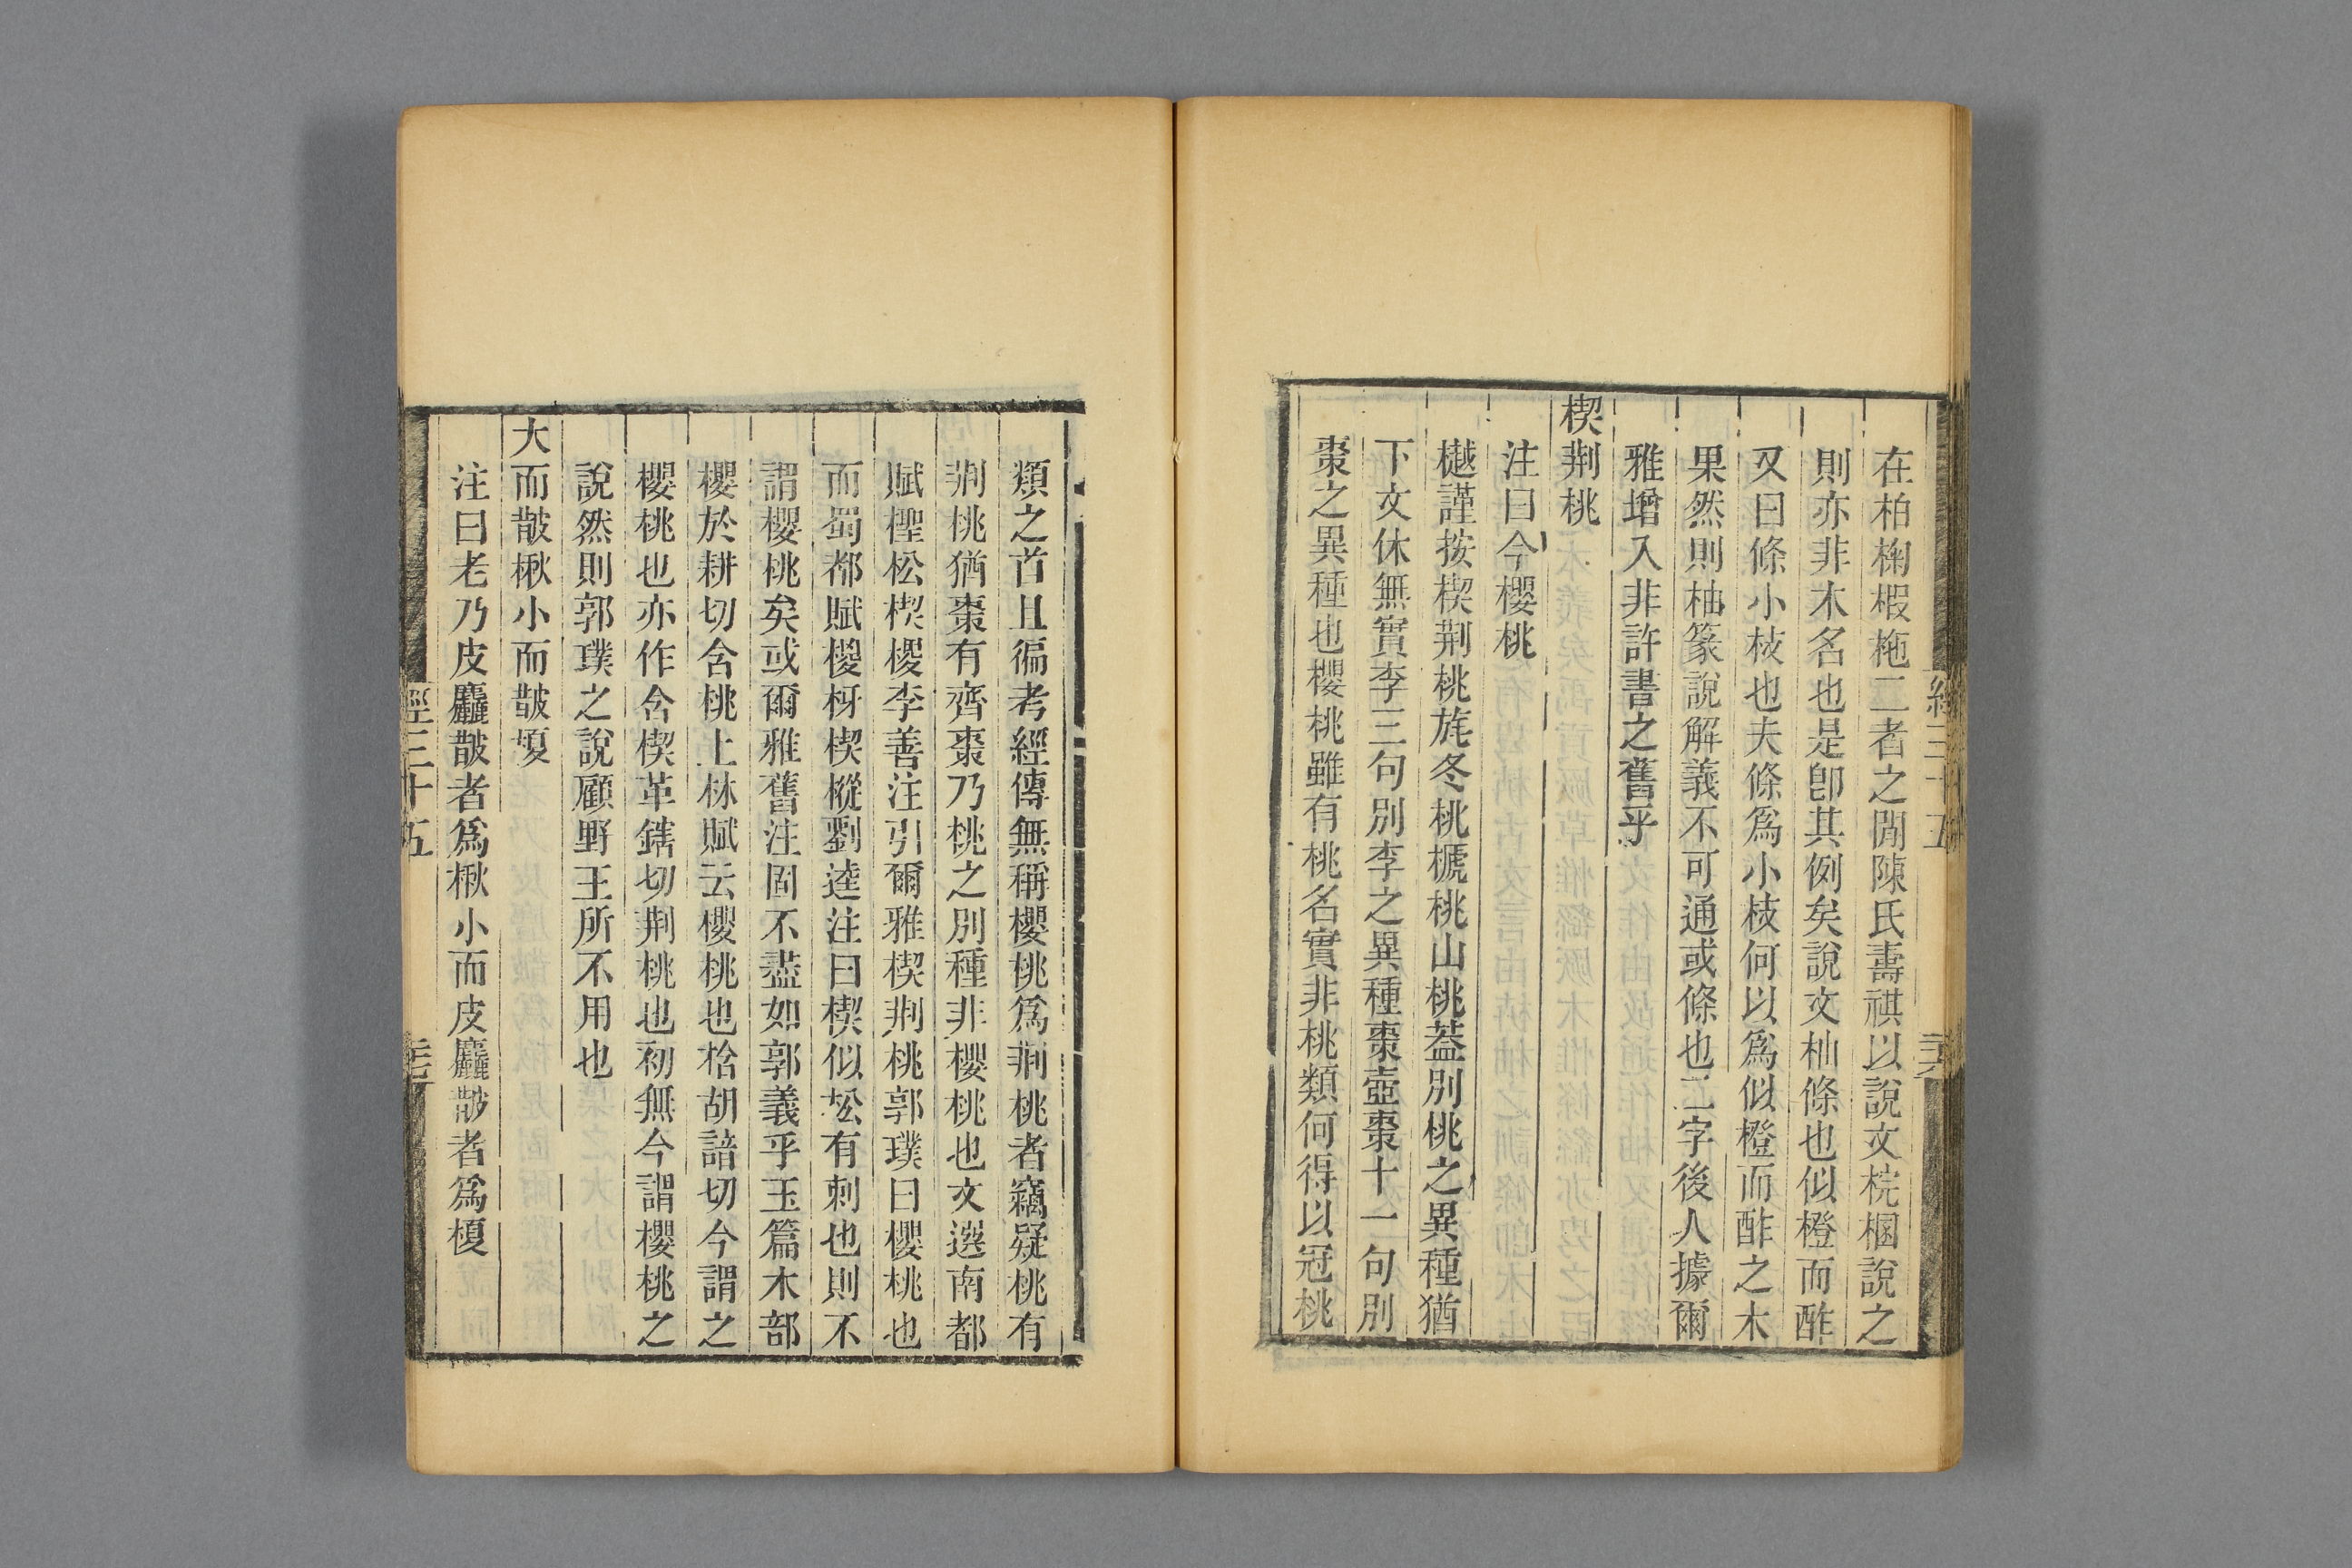 在柏椈椵柂二者之閒陳氏壽祺以說文梡棞說之
則亦非木名也是卽其例矣說文柚條也似橙而酢
又曰條小枝也夫條爲小枝何以爲似橙而酢之木
果然則柚篆說解義不可通或條也二字後人據爾
雅增入非許書之舊乎
楔荆桃
注曰今櫻桃
樾謹按楔荆桃旄冬桃榹桃山桃蓋別桃之異種猶
下文休無實李三句別李之異種棗壺棗十一句別
棗之異種也櫻桃雖有桃名實非桃類何得以冠桃
類之首且徧考經傳無稱櫻桃爲荆桃者竊疑桃有
荆桃猶棗有齊棗乃桃之別種非櫻桃也文選南都
賦檉松楔㮨李善注引爾雅楔荆桃郭璞曰櫻桃也
而蜀都賦㮨枒楔樅劉逵注曰楔似松有刺也則不
謂櫻桃矣或爾雅舊注固不盡如郭義乎玉篇木部
櫻於耕切含桃上林賦云櫻桃也梒胡諳切今謂之
櫻桃也亦作含楔革鎋切荆桃也初無今謂櫻桃之
說然則郭璞之說顧野王所不用也
大而皵楸小而皵榎
注曰老乃皮麤皵者爲楸小而皮麤皵者爲榎
經三十五